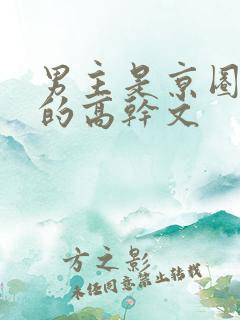 男主是京圈
的高幹文
方之影
未经同意禁止转载